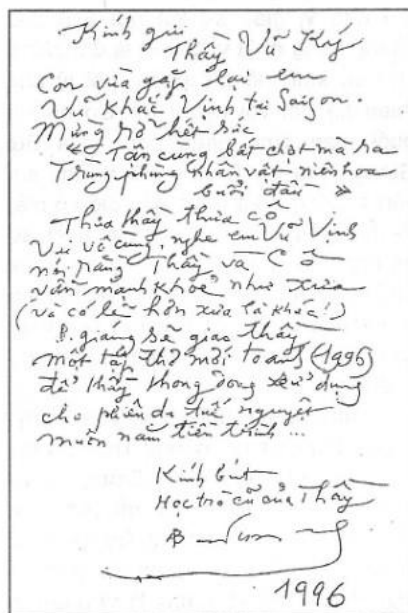 Kính gửi
Thầy Vũ Ký
Con vừa gặp lại em
Vũ Khắc Vịnh tại Saigon.
Mừng rỡ hết sức
« Tận cùng bất chợt mà ra
Trùng phùng nhân vật niên hoa
buổi đầu »
Thưa thầy thưa cô
Vui vô cùng, nghe em Vũ Vịnh
nói rằng Thầy và Cô
vẫn mạnh khoẻ như xưa
(và có lẽ hơn xưa là khác!)
B. giáng sẽ giao thầy
một tập thơ mới toanh (1996)
để thầy thong dong sử dụng
cho phiêu du tuế nguyệt
muôn năm tiến trình ...
Kính bút
Học trò cũ của Thầy
1996